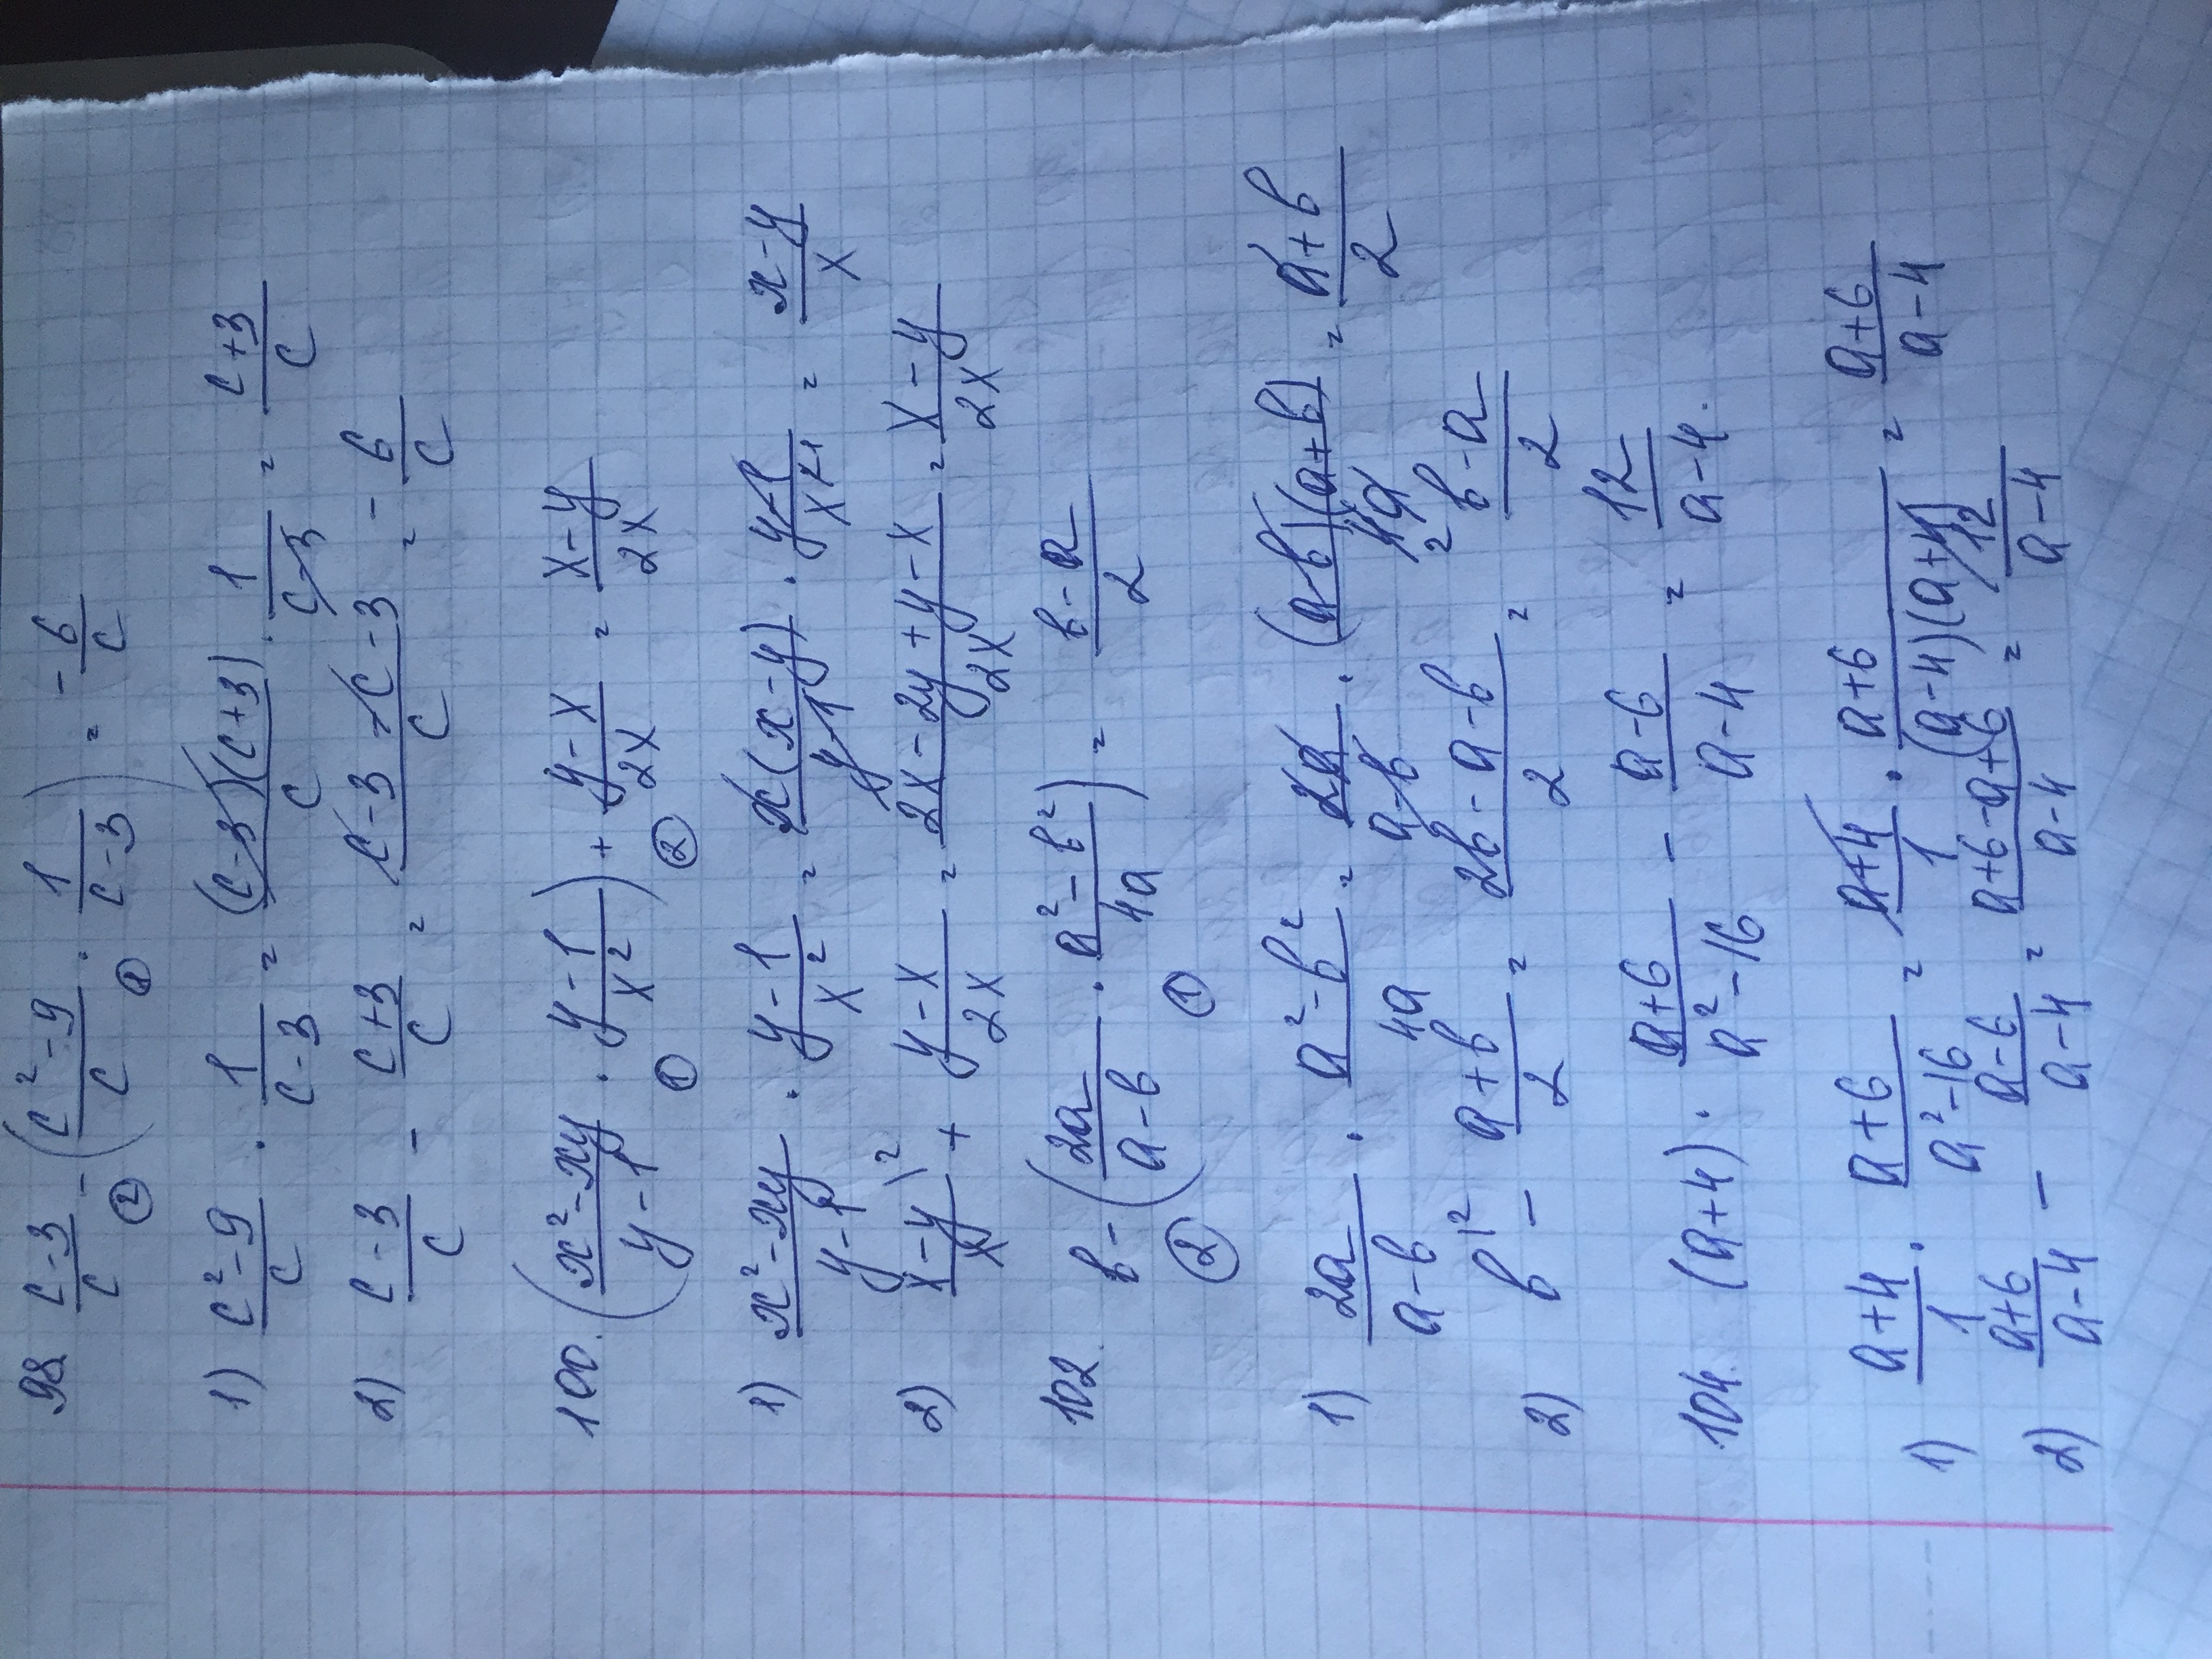 98. (c-3)/c - ((c²-9)/c · 1/(c-3)) = -6/c
② ①
1) (c²-9)/c · 1/(c-3) = (c-3)(c+3)/c · 1/(c-3) = (c+3)/c
2) (c-3)/c - (c+3)/c = (c-3-c-3)/c = -6/c
100. ((x²-xy)/(y-1) · (y-1)/x²) + (y-x)/2x = (x-y)/2x
① ②
1) (x²-xy)/(y-1) · (y-1)/x² = x(x-y)/(y-1) · (y-1)/x² = (x-y)/x
2) (x-y)/x \² + (y-x)/2x = (2x-2y+y-x)/2x = (x-y)/2x
102. b - (2a/(a-b) · (a²-b²)/4a) = (b-a)/2
② ①
1) 2a/(a-b) · (a²-b²)/4a = 2a/(a-b) · (a-b)(a+b)/4a 2 = (a+b)/2
2) b \² - (a+b)/2 = (2b-a-b)/2 = (b-a)/2
104. (a+4) · (a+6)/(a²-16) - (a-6)/(a-4) = 12/(a-4).
1) (a+4)/1 · (a+6)/(a²-16) = (a+4)/1 · (a+6)/((a-4)(a+4)) = (a+6)/(a-4)
2) (a+6)/(a-4) - (a-6)/(a-4) = (a+6-a+6)/(a-4) = 12/(a-4)